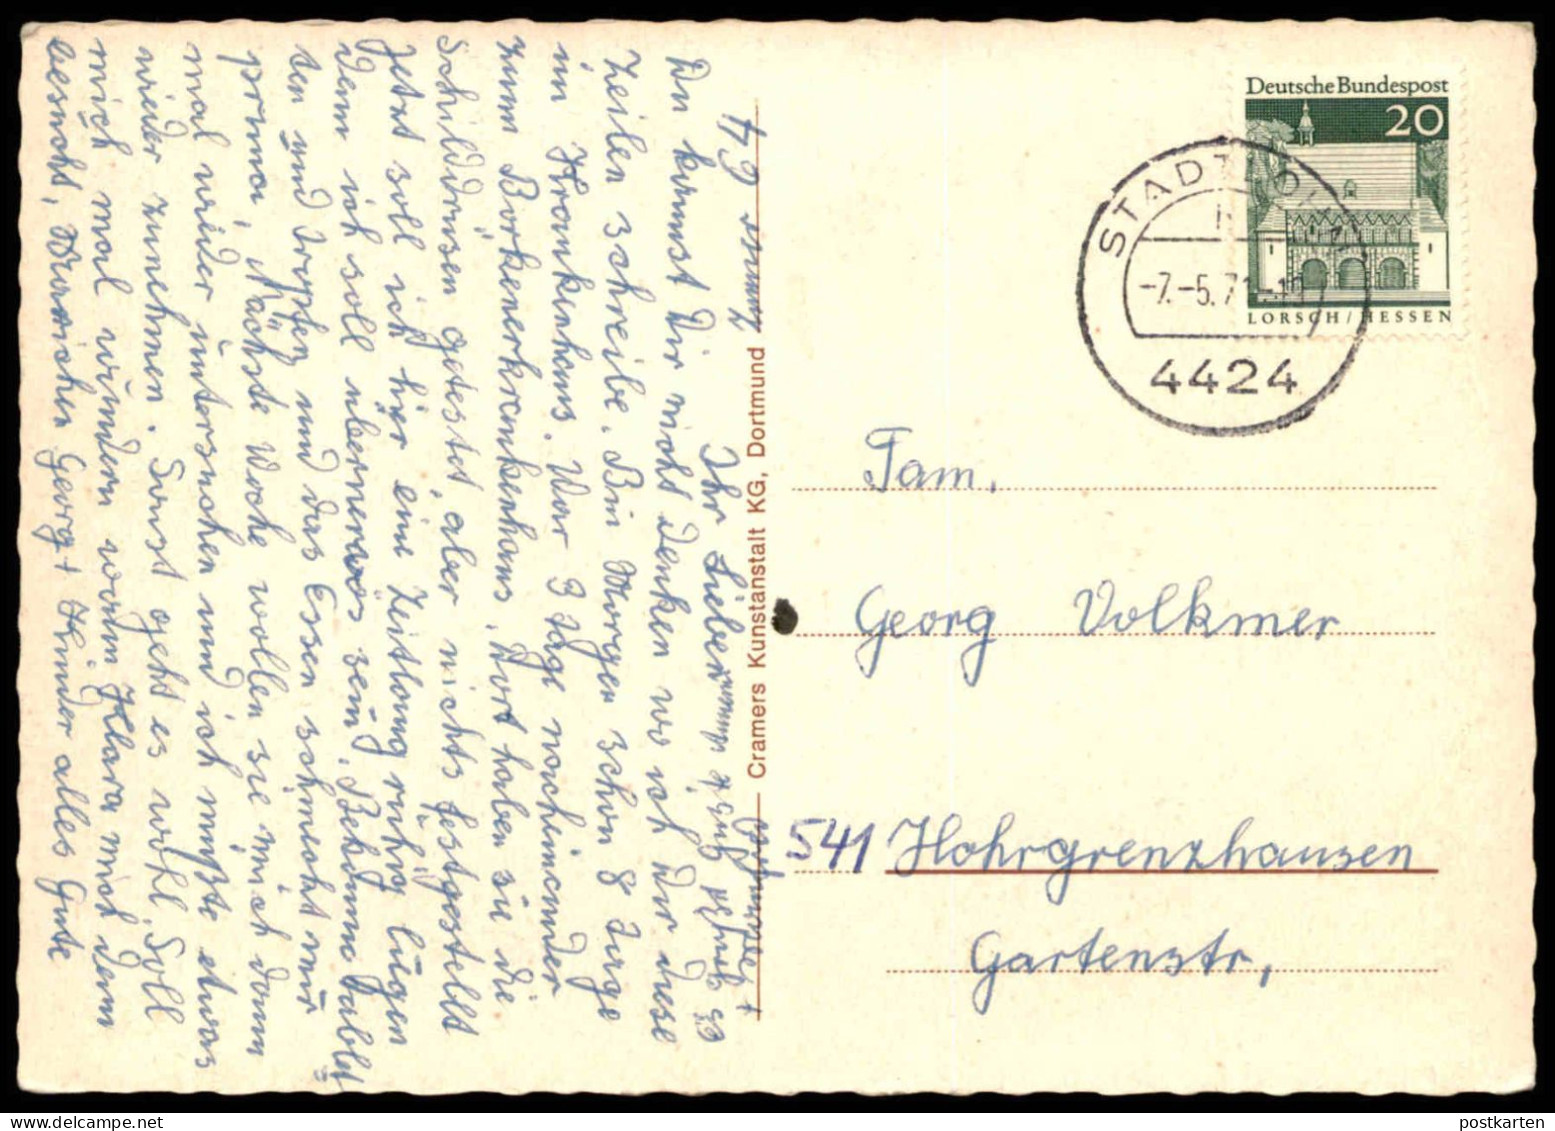 Deutsche Bundespost
20
LORSCH/HESSEN
STADTLOHN
-7.-5.71-19
4424
Fam.
Georg Volkmer
541 Hohrgrenzhausen
Gartenstr,
Cramers Kunstanstalt KG, Dortmund
Zimmer 64
Ihr Lieben
Du kannst Dir nicht denken wo ich Dir diese
Zeilen schreibe. Bin Morgen schon 8 Tage
im Krankenhaus. War 3 Tage nacheinander
zum Borkenerkrankenhaus, Dort haben sie die
Schilddrüsen getestet, aber nichts festgestellt
Jetzt soll ich hier eine Zeitlang ruhig liegen
denn ich soll übernervös sein. Bekomme Tablet
ten und Tropfen und das Essen schmeckt nur
prima, Nächste Woche wollen sie mich dann
mal wieder untersuchen und ich müßte etwas
wieder zunehmen. Sonst geht es wohl, Soll
mich mal wundern wann Klara mich denn
besucht, Wünsche Georg + Kinder alles Gute
es